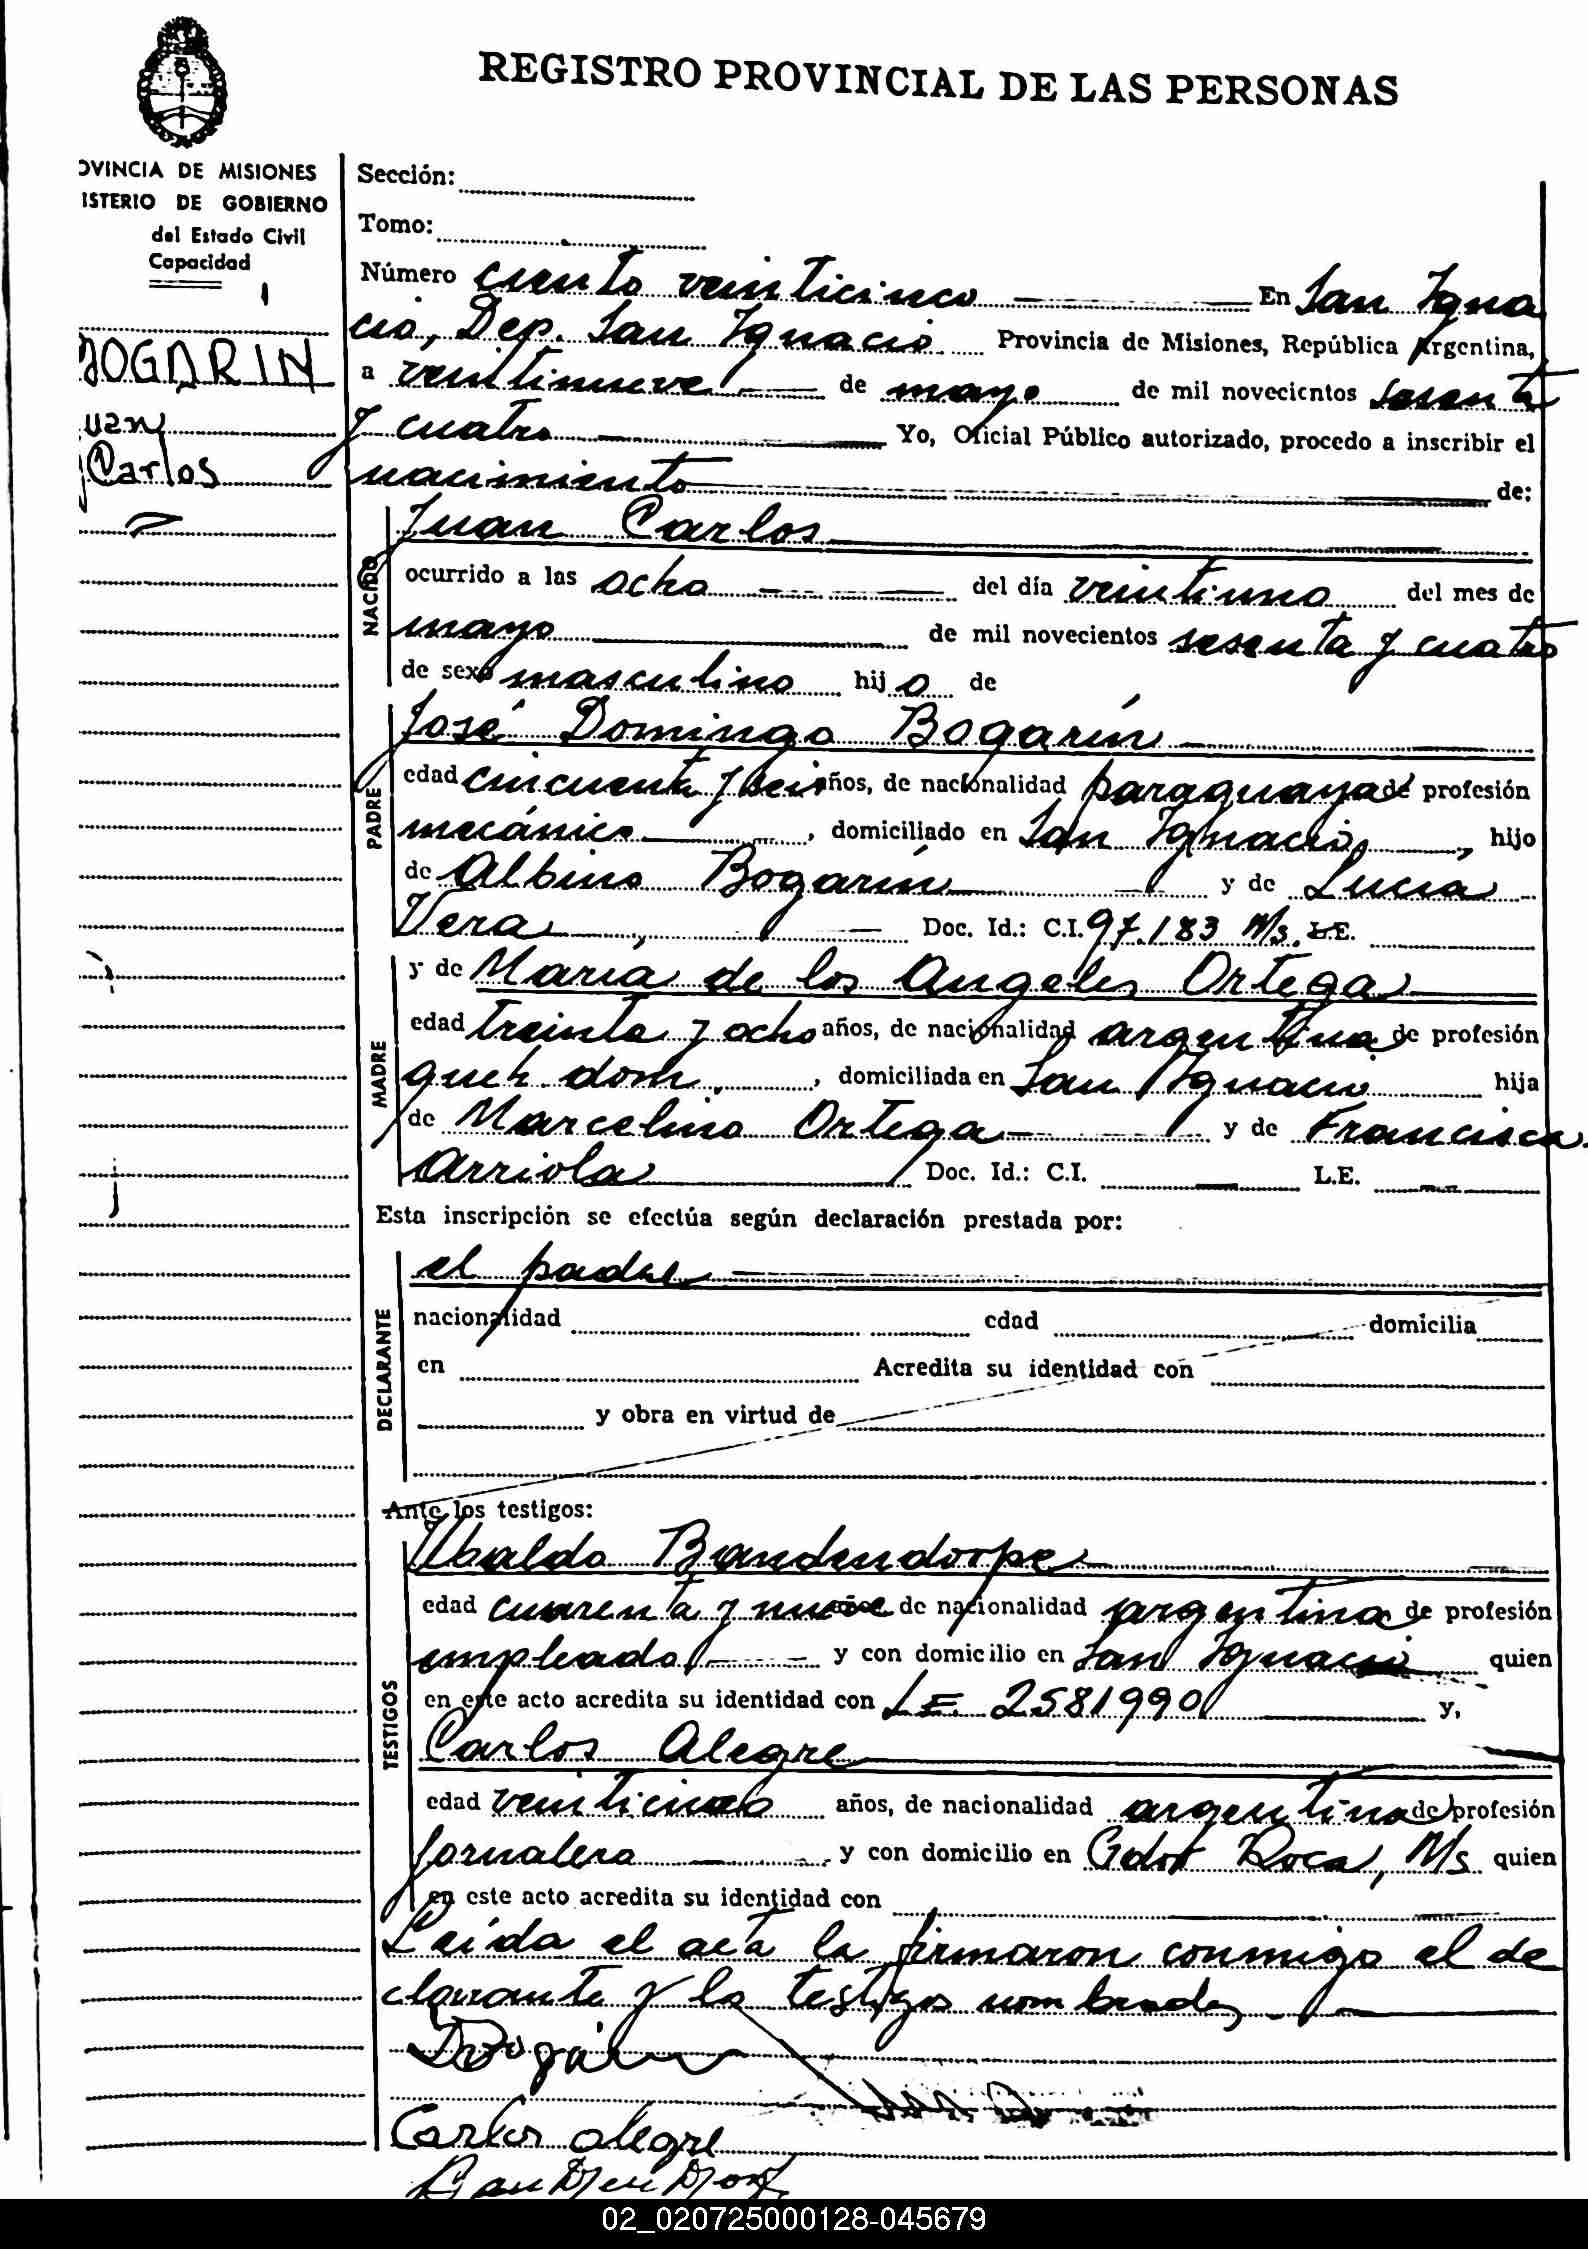 REGISTRO PROVINCIAL DE LAS PERSONAS
OVINCIA DE MISIONES
ISTERIO DE GOBIERNO
del Estado Civil
Capacidad
BOGARIN
uan
Carlos
Sección:
Tomo:
Número ciento veinticinco En San Igna
cio, Dep. San Ignacio Provincia de Misiones, República Argentina,
a veintinueve de mayo de mil novecientos sesenta
y cuatro Yo, Oficial Público autorizado, procedo a inscribir el
nacimiento de:
NACIDO
Juan Carlos
ocurrido a las ocho del día veintiuno del mes de
mayo de mil novecientos sesenta y cuatro
de sexo masculino hijo de
PADRE
José Domingo Bogarín
edad cincuenta y seis años, de nacionalidad paraguaya de profesión
mecánico, domiciliado en San Ignacio, hijo
de Albino Bogarín y de Lucia
Vera, Doc. Id.: C.I. 97.183 M/s. L.E.
MADRE
y de María de los Angeles Ortega
edad treinta y ocho años, de nacionalidad argentina de profesión
queh. dom., domiciliada en San Ignacio hija
de Marcelino Ortega y de Francisca
Arriola Doc. Id.: C.I. L.E.
Esta inscripción se efectúa según declaración prestada por:
DECLARANTE
el padre
nacionalidad edad domicilia
en Acredita su identidad con
y obra en virtud de
Ante los testigos:
TESTIGOS
Ubaldo Bandendorpe
edad cuarenta y nueve de nacionalidad argentina de profesión
empleado y con domicilio en San Ignacio quien
en este acto acredita su identidad con L.E. 2581990 y,
Carlos Alegre
edad veinticinco años, de nacionalidad argentina de profesión
jornalero y con domicilio en Gdor Roca, M/s quien
en este acto acredita su identidad con
Leída el acta la firmaron conmigo el de
clarante y los testigos nombrados
Carlos Alegre
02_020725000128-045679